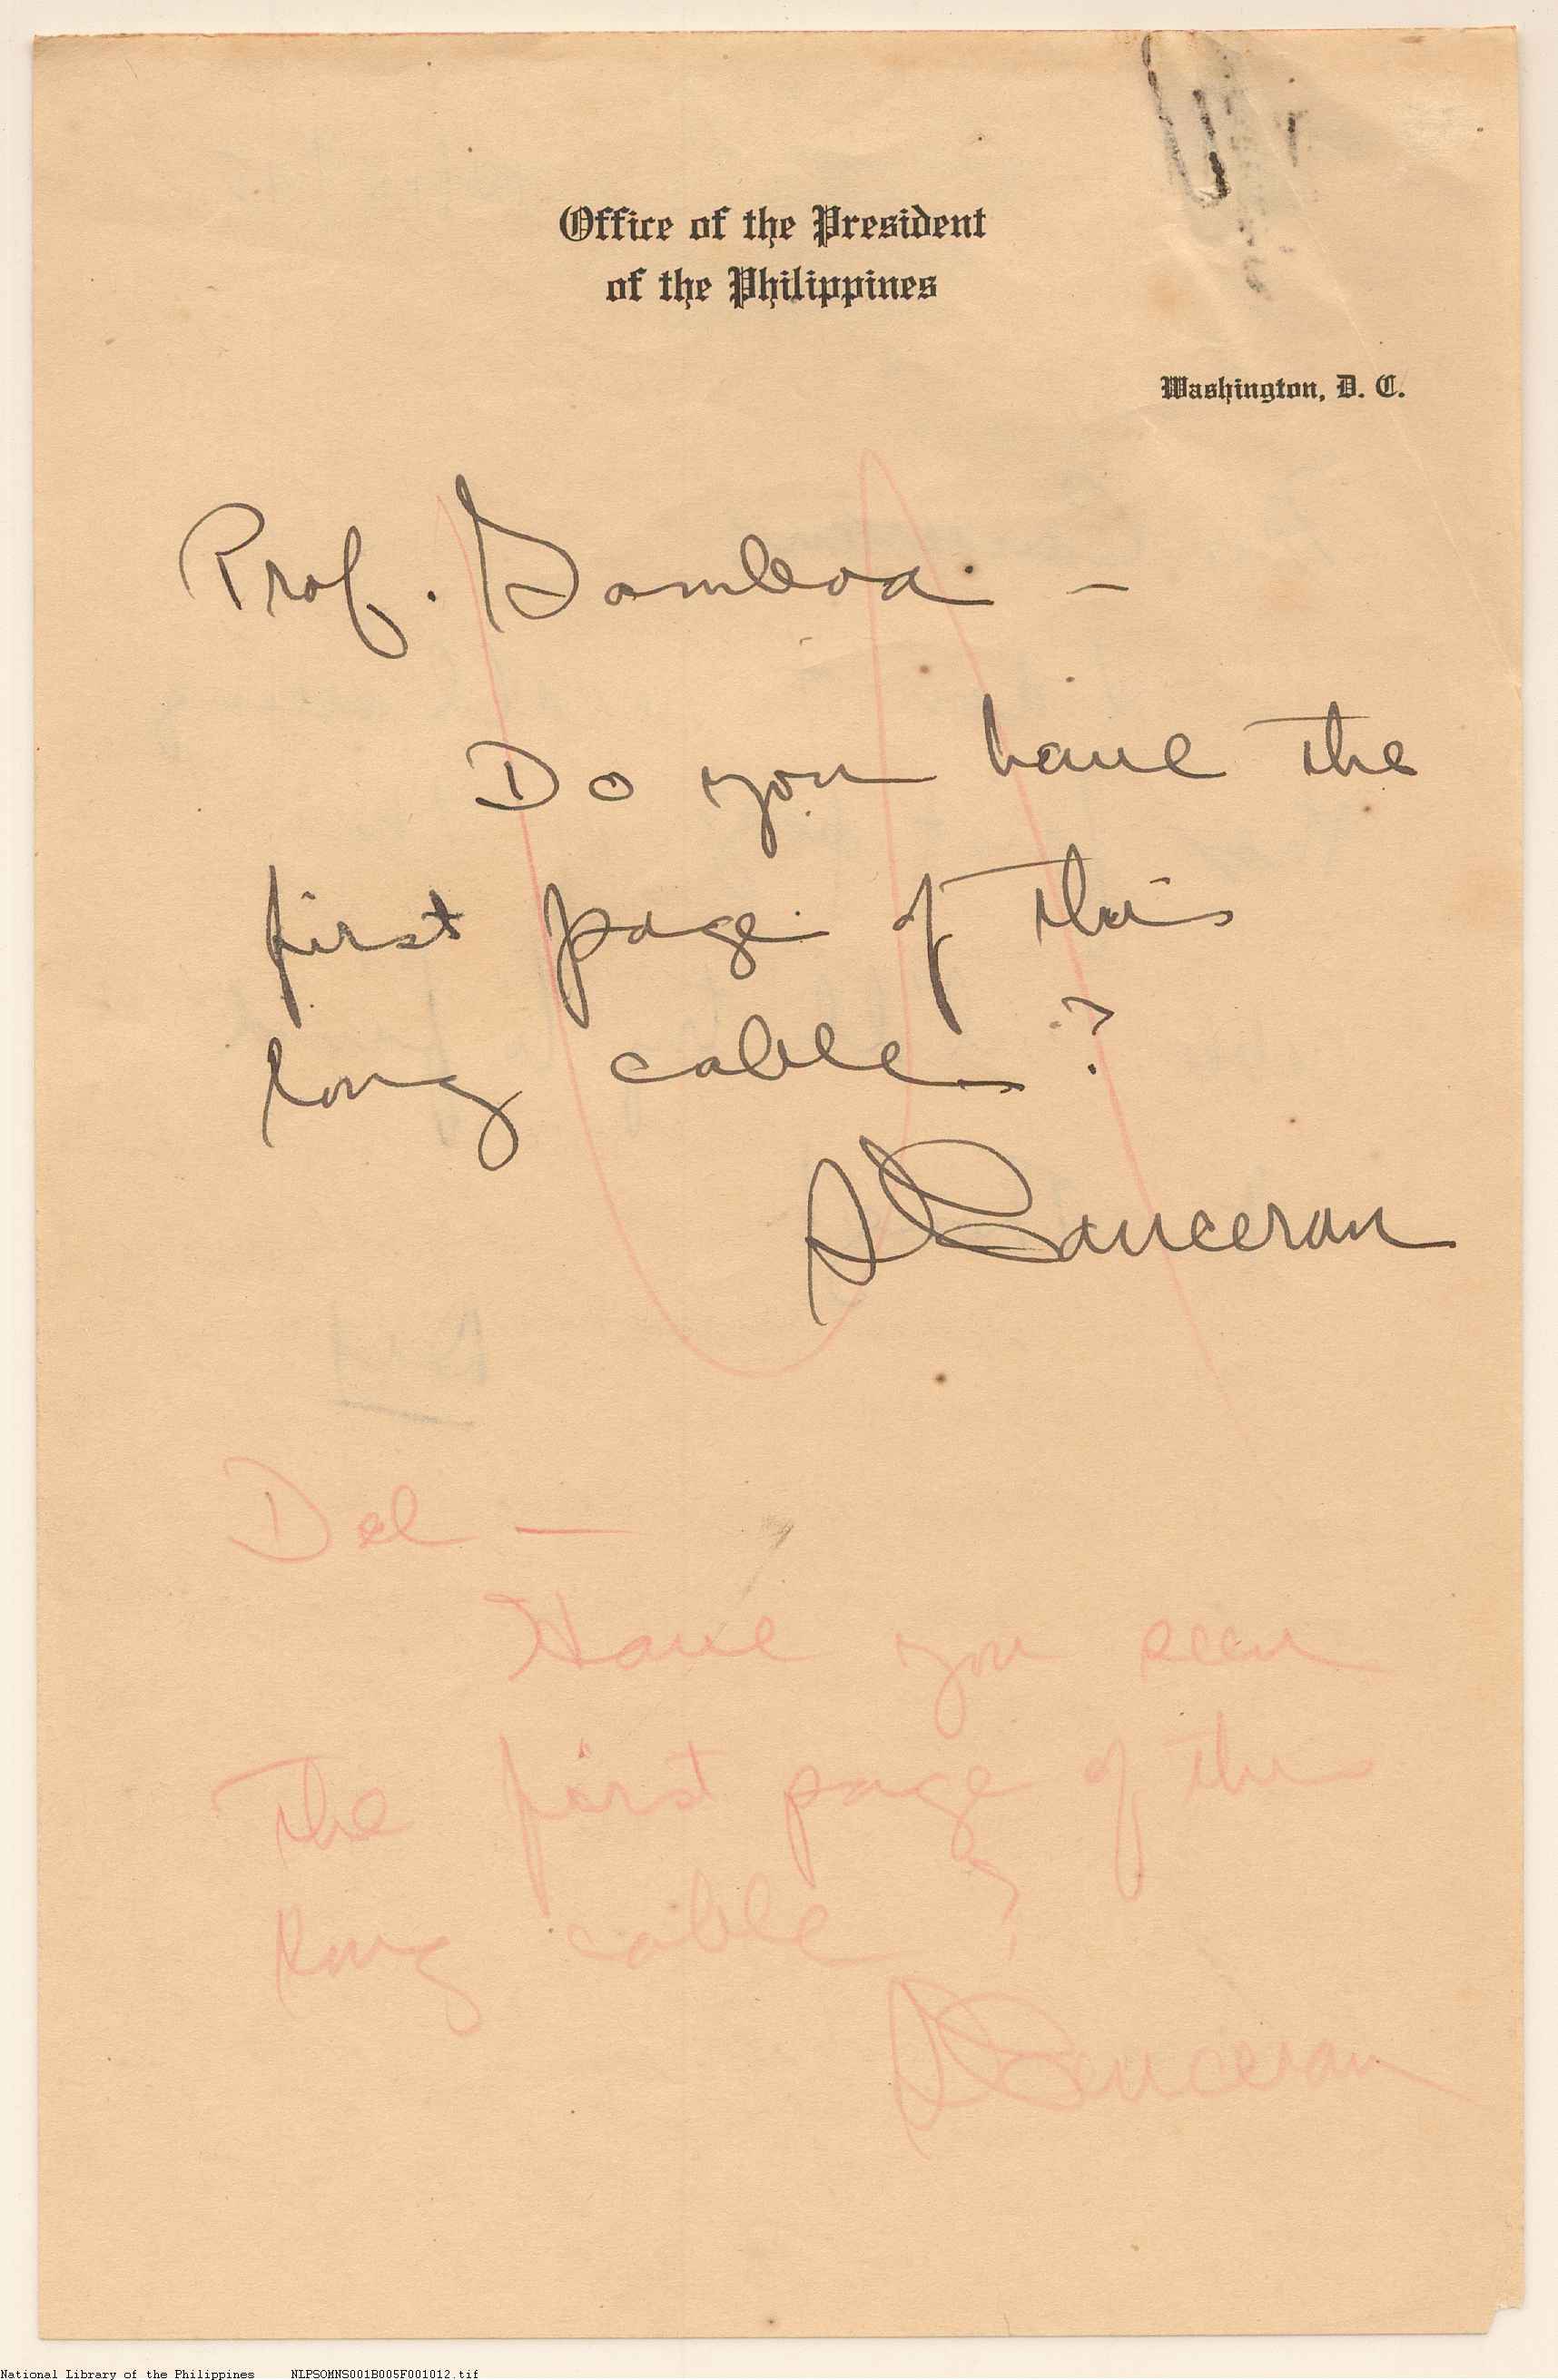 Office of the President
of the Philippines
Washington, D. C.
Prof. Gamboa —
Do you have the
first page of this
long cable?
Canceran
Del —
Have you seen
the first page of this
long cable?
Canceran
National Library of the Philippines NLPSOMNS001B005F001012.tif